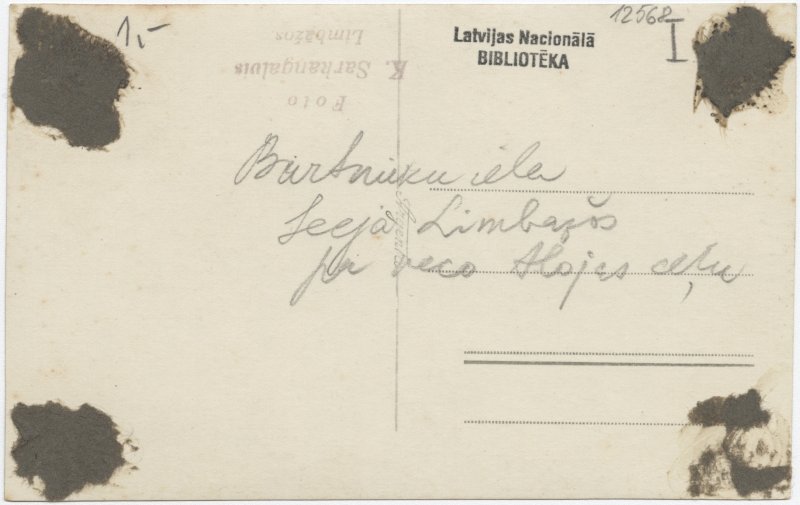 1,-
12568
I
Latvijas Nacionālā
BIBLIOTĒKA
Foto
K. Sarkangalvis
Limbažos
Burtnieku iela
Ieejā Limbažos
pa veco Alojas ceļu